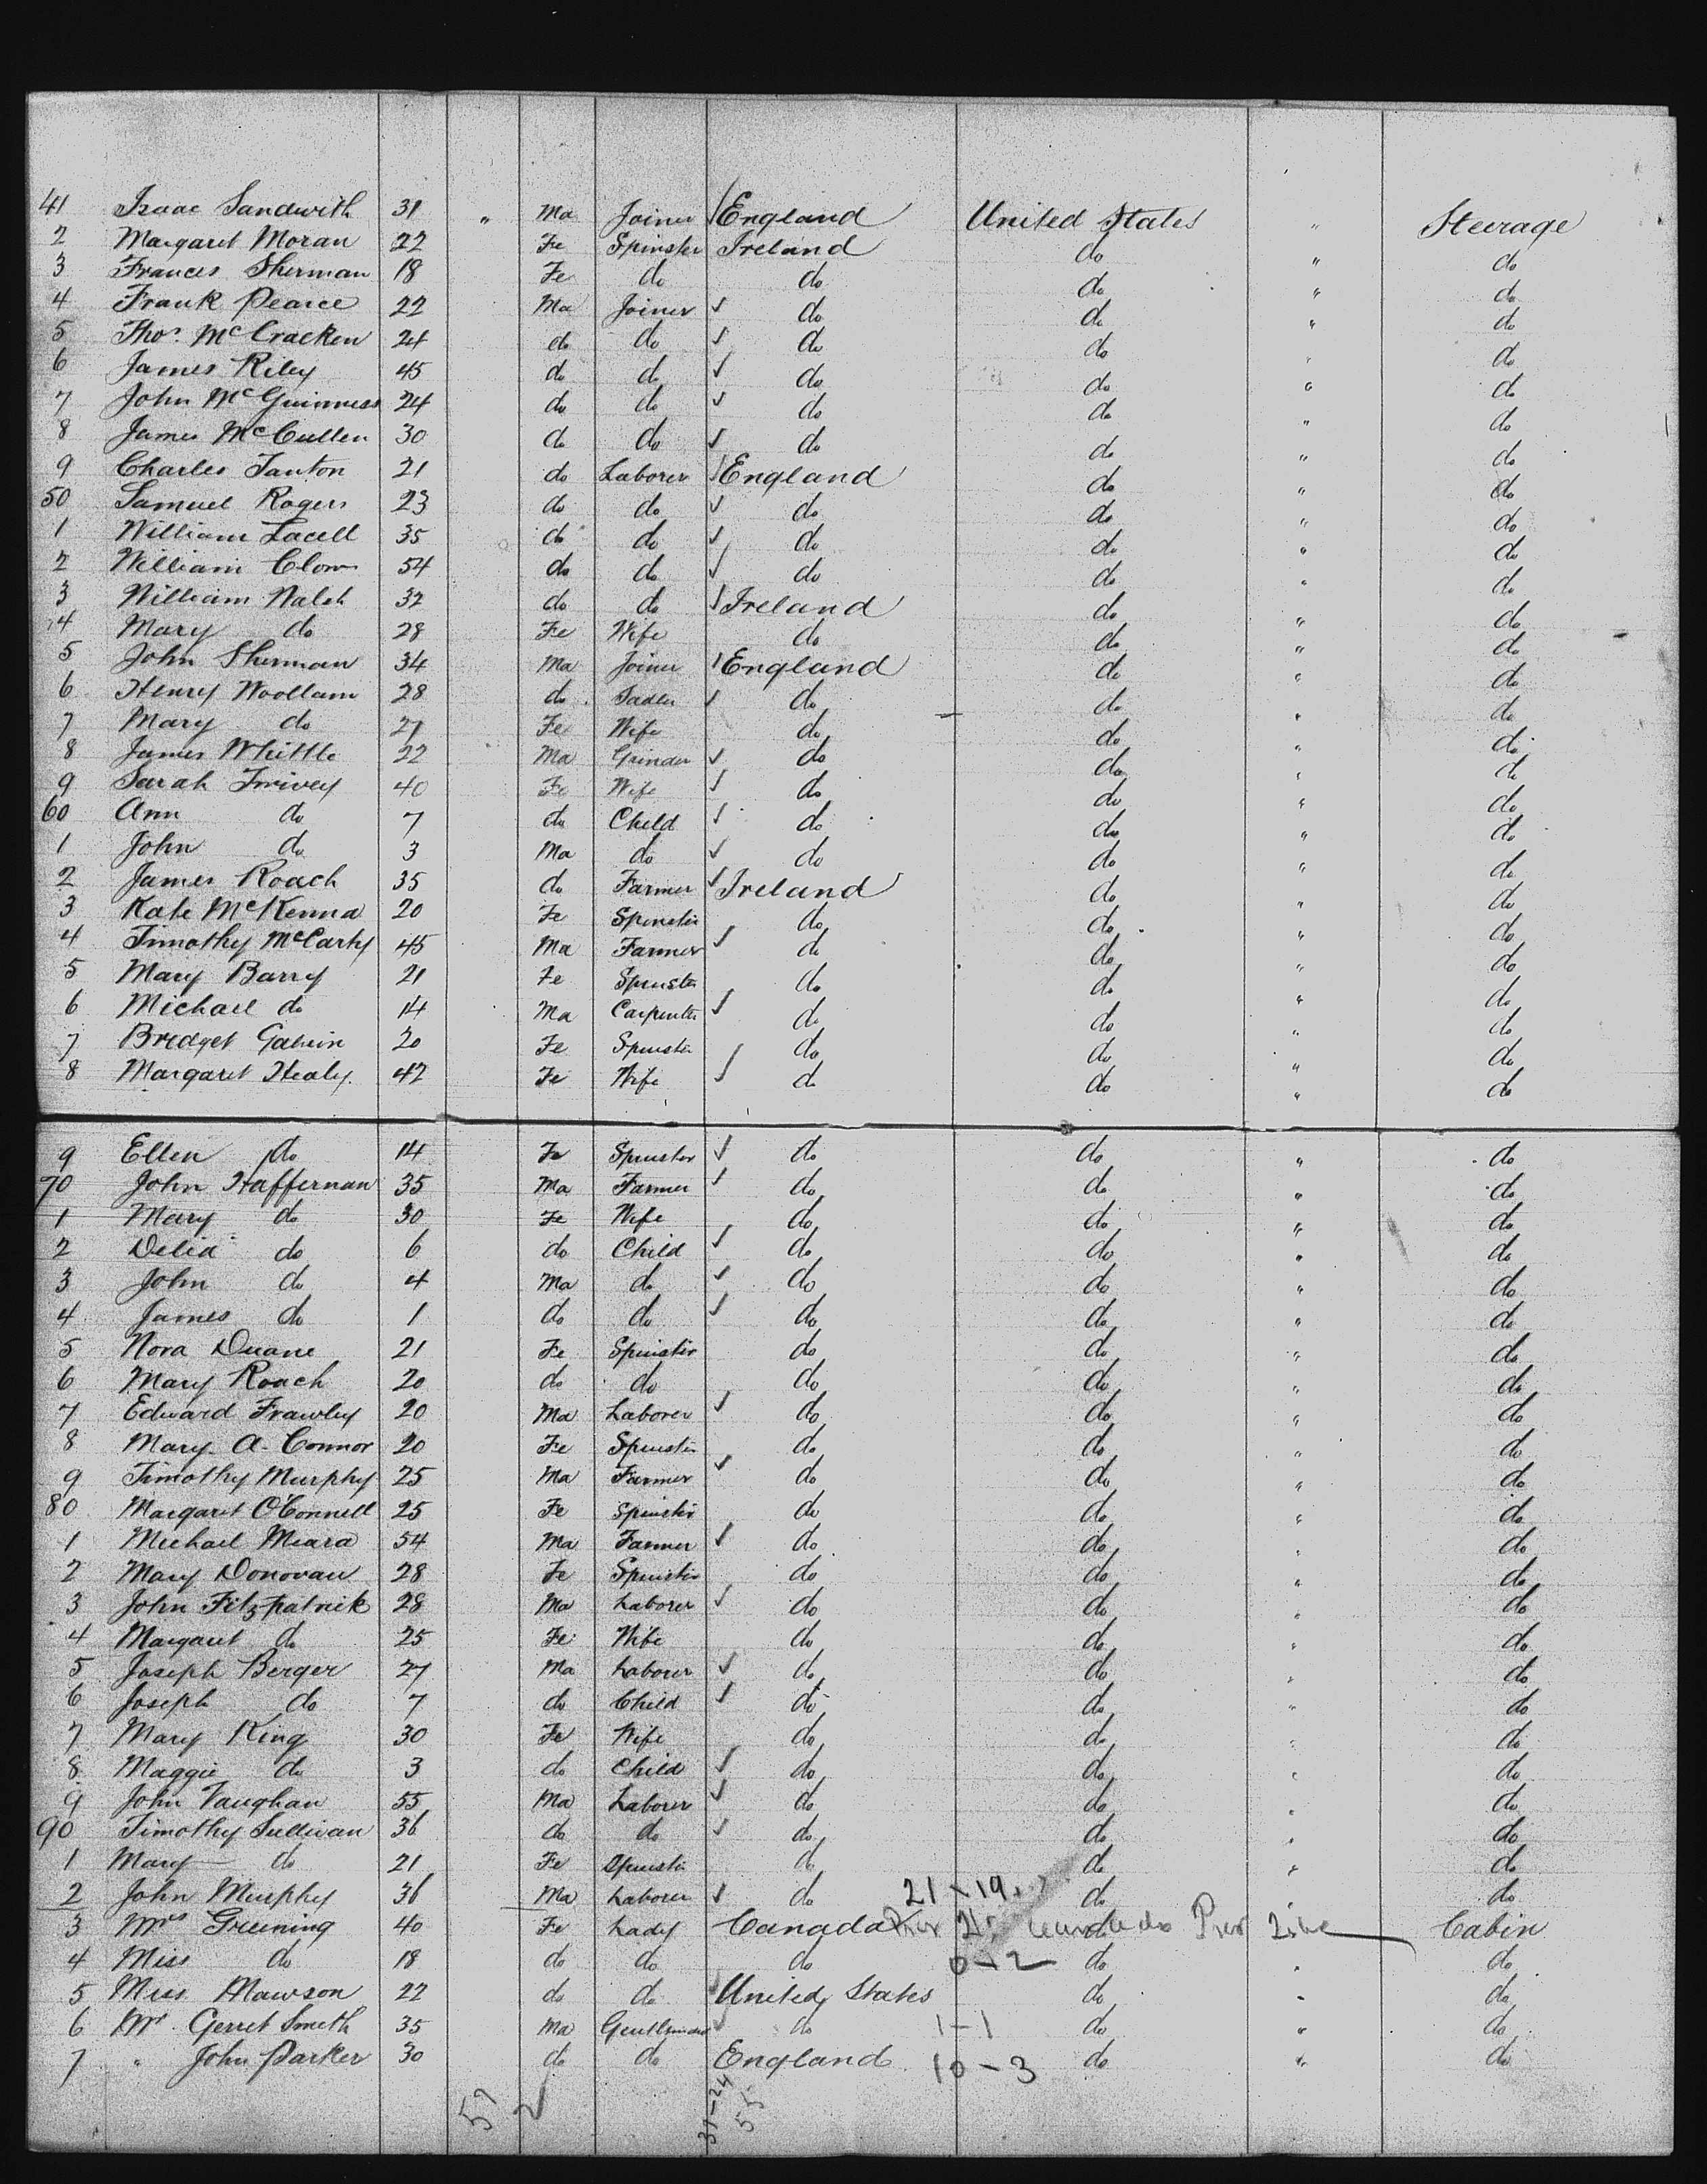 41 Isaac Sandwith 31 " Ma Joiner England United States " Steerage
2 Margaret Moran 22 Fe Spinster Ireland do " do
3 Frances Sherman 18 Fe do do do " do
4 Frank Pearce 22 Ma Joiner do do " do
5 Thos. McCracken 24 do do do do " do
6 James Riley 45 do do do do " do
7 John McGuinness 24 do do do do " do
8 James McCullen 30 do do do do " do
9 Charles Tanton 21 do Laborer England do " do
50 Samuel Rogers 23 do do do do " do
1 William Lacell 35 do do do do " do
2 William Clow 54 do do do do " do
3 William Walsh 32 do do Ireland do " do
4 Mary do 28 Fe Wife do do " do
5 John Sherman 34 Ma Joiner England do " do
6 Henry Woollam 28 do Sadler do do " do
7 Mary do 27 Fe Wife do do " do
8 James Whittle 22 Ma Grinder do do " do
9 Sarah 40 Fe Wife do do " do
60 Ann do 7 do Child do do " do
1 John do 3 Ma do do do " do
2 James Roach 35 do Farmer Ireland do " do
3 Kate McKenna 20 Fe Spinster do do " do
4 Timothy McCarty 45 Ma Farmer do do " do
5 Mary Barry 21 Fe Spinster do do " do
6 Michael do 14 Ma Carpenter do do " do
7 Bridget Galvin 20 Fe Spinster do do " do
8 Margaret Healy 42 Fe Wife do do " do
9 Ellen do 14 Fe Spinster do do " do
70 John Haffernan 35 Ma Farmer do do " do
1 Mary do 30 Fe Wife do do " do
2 Delia do 6 do Child do do " do
3 John do 4 Ma do do do " do
4 James do 1 do do do do " do
5 Nora Duane 21 Fe Spinster do do " do
6 Mary Roach 20 do do do do " do
7 Edward Frawley 20 Ma Laborer do do " do
8 Mary A. Connor 20 Fe Spinster do do " do
9 Timothy Murphy 25 Ma Farmer do do " do
80 Margaret O'Connell 25 Fe Spinster do do " do
1 Michael Meara 54 Ma Farmer do do " do
2 Mary Donovan 28 Fe Spinster do do " do
3 John Fitzpatrick 28 Ma Laborer do do " do
4 Margaret do 25 Fe Wife do do " do
5 Joseph Berger 27 Ma Laborer do do " do
6 Joseph do 7 do Child do do " do
7 Mary King 30 Fe Wife do do " do
8 Maggie do 3 do Child do do " do
9 John Vaughan 55 Ma Laborer do do " do
90 Timothy Sullivan 36 do do do do " do
1 Mary do 21 Fe Spinster do do " do
2 John Murphy 36 Ma Laborer do 21-19 do " do
3 Mrs Greening 40 Fe Lady Canada do Cabin
4 Miss do 18 do do do 0-2 do " do
5 Miss Mawson 22 do do United States do " do
6 Mr. Gerret Smith 35 Ma Gentleman do 1-1 do " do
7 " John Parker 30 do do England 10-3 do " do
57 2 31-24 55